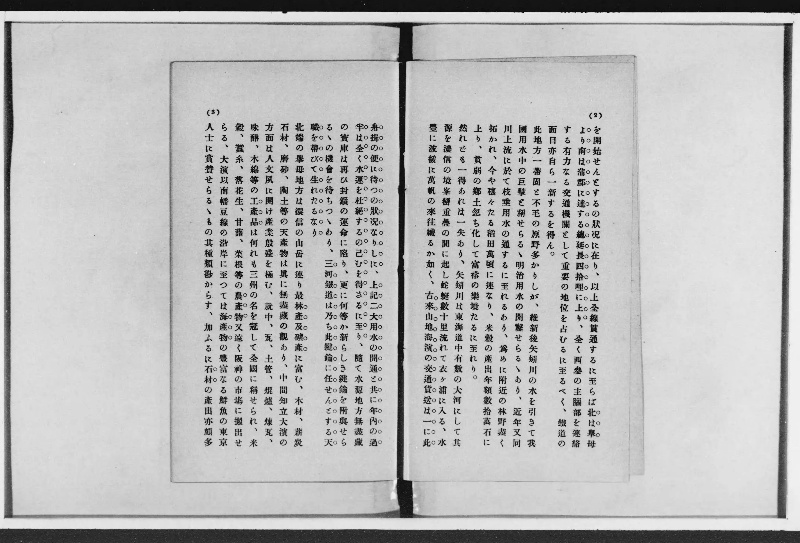 (2)
を開始せんとするの狀況に在り、以上全線貫通するに至らば北は擧母
より南は蒲郡に達する總延長四拾哩に上り、全く西參の主腦部を連絡
する有力なる交通機關として重要の地位を占むるに至るべく、鐵道の
面目亦自ら一新するを得ん。
此地方一帶固と不毛の原野多かりしが、維新後矢作川の水を引きて我
國用水中の巨擘と稱せらるゝ明治用水の開鑿せらるゝあり、近年又同
川上流に於て枝乗用水の通ずるに至れるあり、爲めに附近の林野蓋く
拓かれ、今や穰々たる稻田萬頃に連なり、米穀の產出年額數拾萬石に
上り、貧弱の鄕土忽ち化して富裕の樂境たるに至れり。
然れども一得あれば一失あり、矢作川は東海道中有數の大河にして其
源を濃信の境峯巒重疊の間に起し蜿蜒數十里流れて衣ヶ浦に入る、水
量に波緩に萬帆の來往織るが如く、古來山地海濱の交通貨運は一に此
(3)
舟揖の便に待つの狀況なりしに、上記二大用水の開通と共に年内の過
半は全く水運を杜絕するの已むを得ざるに至り、隨て水源地方無盡藏
の寶庫は再び封鎖の運命に陷り、更に何等か新らしき鍵鑰を附與せら
るゝの機會を待ちつゝあり、三河鐵道は乃ち此鍵鑰に任ぜんとする天
職を帶びて生れたるなり
北端の擧母地方は濃信の山岳に連り最林產及礦產に富む、木材、薪炭
石材、磨砂、陶土等の天產物は眞に無盡藏の觀あり、中間知立大濱の
方面は人文夙に開け產業殷盛を極む、就中、瓦、土管、焜爐、煉瓦、
味醂、木綿等の工產品は何れも三州の名を冠して全國に稱せられ、米
穀、蠶糸、落花生、甘藷、菜根等の農產物又遠く阪神の市場に搬出せ
らる、大濱以南幡豆線の沿岸に至つては海產物の豐富なる鮮魚の東京
人士に賞贊せらるゝもの其種類尠からず、加ふるに石材の產出亦頗多